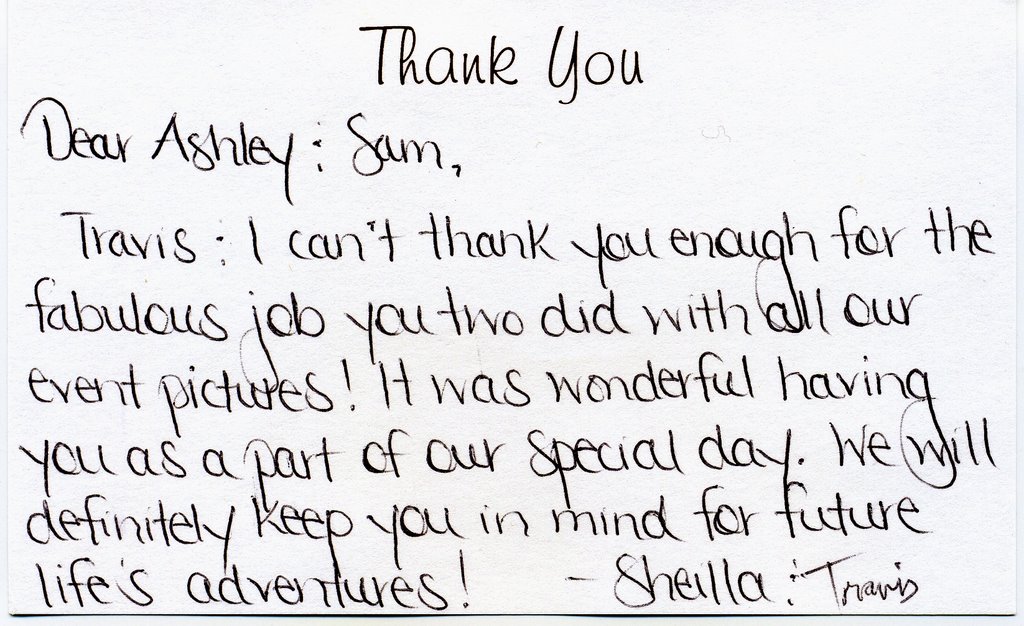 Thank You
Dear Ashley : Sam,
Travis : I can't thank you enough for the
fabulous job you two did with all our
event pictures! It was wonderful having
you as a part of our special day. We will
definitely keep you in mind for future
life's adventures! - Sheilla : Travis